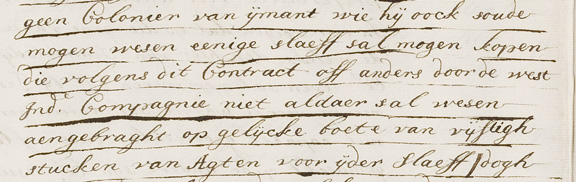 geen Colonier van ijmant wie hij oock soude
mogen wesen eenige slaeff sal mogen kopen
die volgens dit Contract off anders door de west
Ind.e Compagnie niet aldaer sal wesen
aengebraght op gelijcke boete van vijftigh
stucken van Agten voor ijder slaeff / dogh